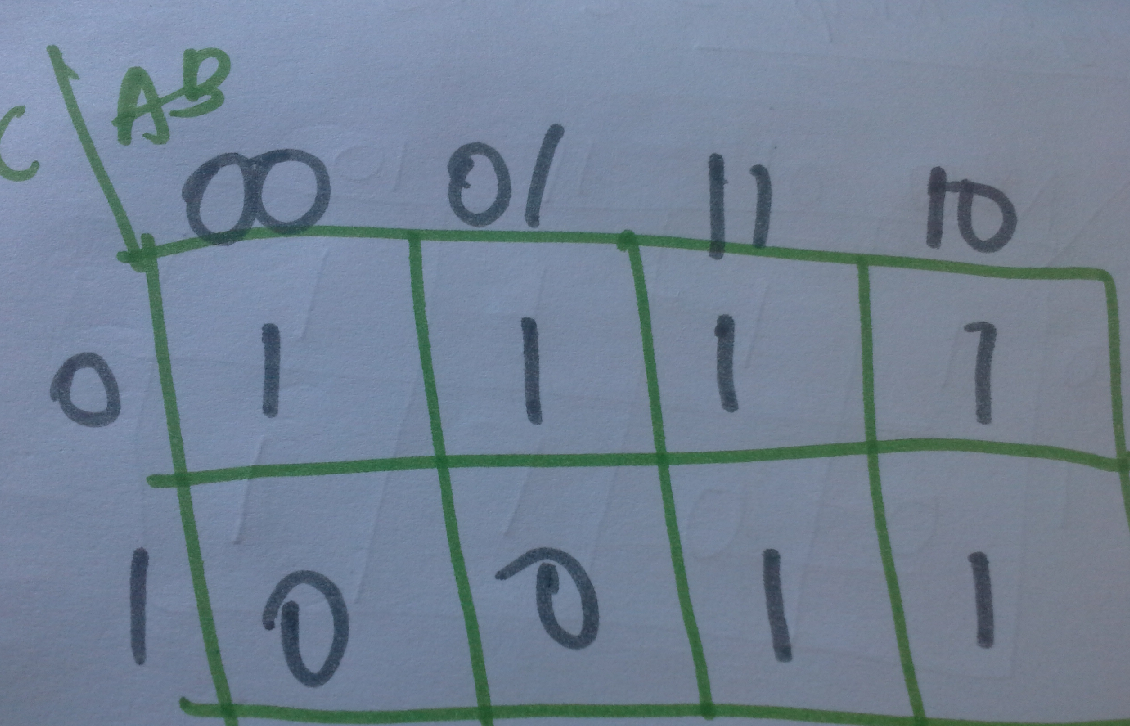 C AB
00 01 11 10
0 1 1 1 1
1 0 0 1 1